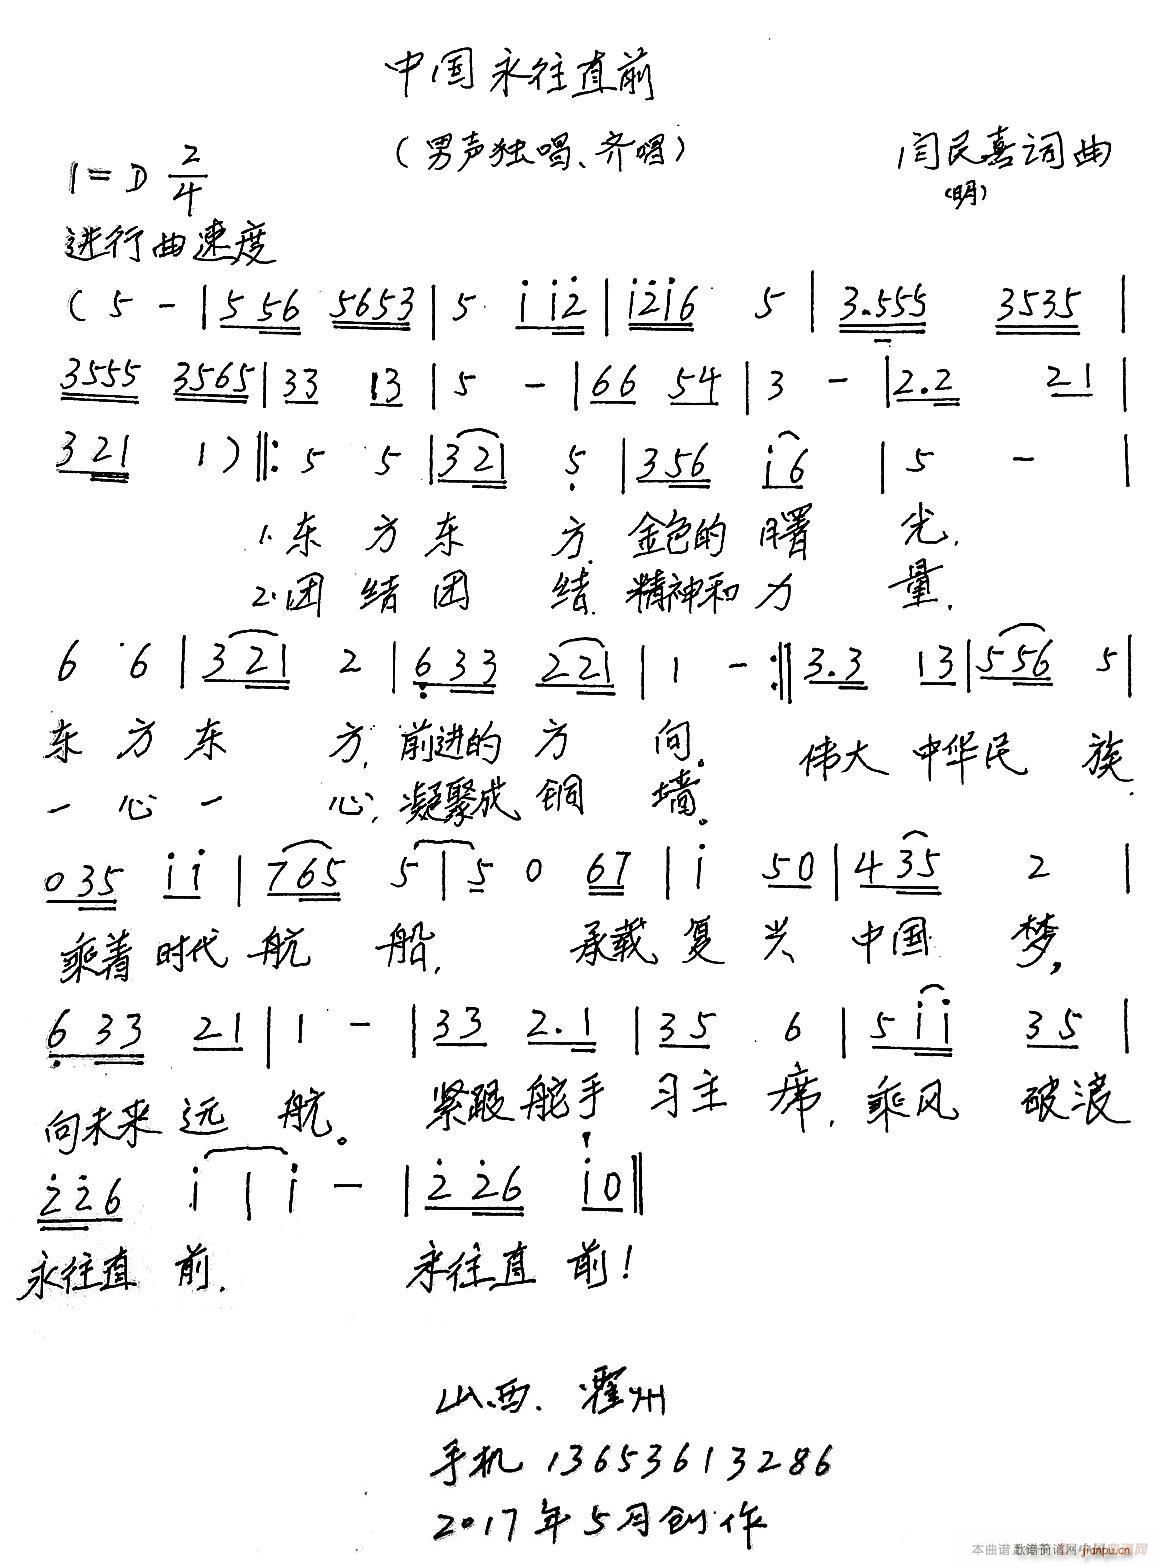 中国永往直前
（男声独唱、齐唱）
闫民喜词曲
(明)
1=D 2/4
进行曲速度
( 5 - | 5 56 5653 | 5 i i2 | i2i6 5 | 3.555 3535 |
3555 3565 | 33 13 | 5 - | 66 54 | 3 - | 2.2 21 |
3 21 1 ) ‖: 5 5 | 3 21 5 | 3 56 i6 | 5 - |
1.东方东方,金色的曙光,
2.团结团结,精神和力量,
6 6 | 3 21 2 | 6 33 2 21 | 1 - :‖ 3.3 13 | 5 56 5 |
东方东方,前进的方向。伟大中华民族,
一心一心,凝聚成铜墙。
0 35 i i | 7 65 5 | 5 0 67 | i 50 | 4 35 2 |
乘着时代航船,承载复兴中国梦,
6 33 21 | 1 - | 33 2.1 | 35 6 | 5 i i 35 |
向未来远航。紧跟舵手习主席,乘风破浪
2 2 6 i | i - | 2 26 i0 ‖
永往直前,永往直前!
山西.霍州
手机 13653613286
2017年5月创作
本曲谱上传于简谱网
jianpu.cn